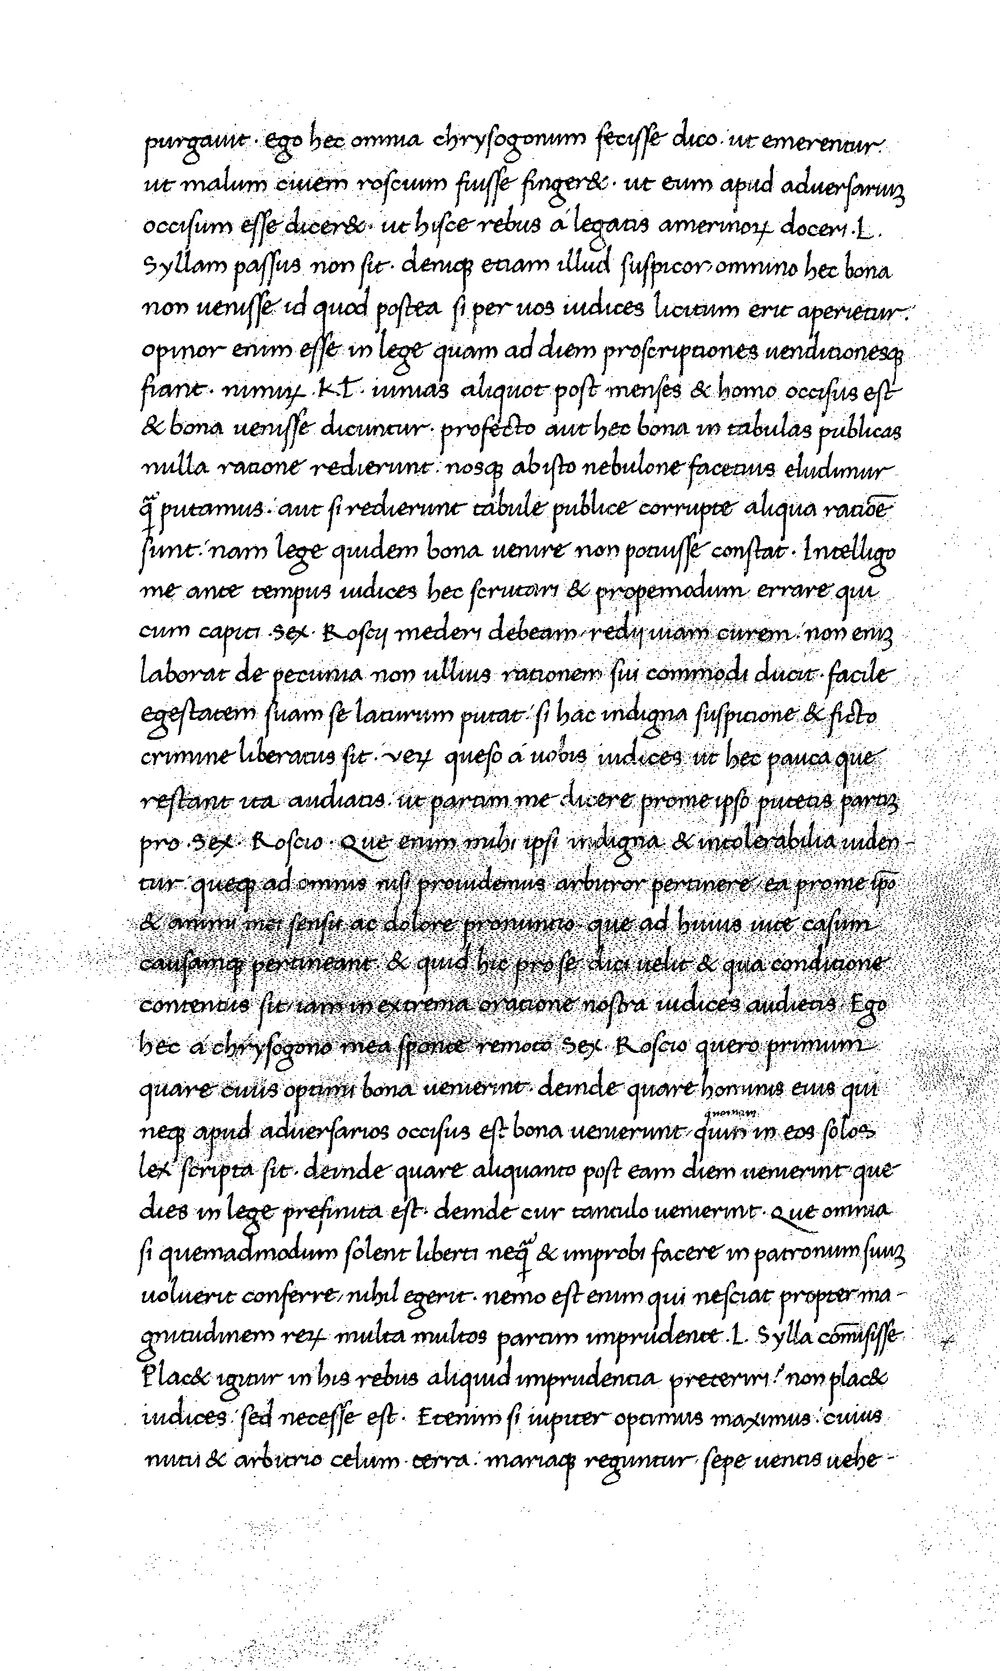 purgauit · ego hec omnia chrysogonum fecisse dico · ut emerentur ·
ut malum ciuem roscium fuisse finger& · ut eum apud aduersariuꝫ
occisum esse dicer& · ut hisce rebus a legatis amerinoꝝ doceri · L ·
Syllam passus non sit · deniqꝫ etiam illud suspicor, omnino hec bona
non uenisse id quod postea si per uos iudices licitum erit aperietur ·
opinor enim esse in lege quam ad diem proscriptiones uenditionesqꝫ
fiant · nimiꝝ · KL̄ · iunias aliquot post menses & homo occisus est
& bona uenisse dicuntur · profecto aut hec bona in tabulas publicas
nulla ratione redierunt : nosqꝫ ab isto nebulone facetius eludimur
qᷓ putamus : aut si redierunt tabule publice corrupte aliqua ratiōe
sunt : nam lege quidem bona uenire non potuisse constat · Intelligo
me ante tempus iudices hec scrutari & propemodum errare qui
cum capiti · Sex · Roscij mederi debeam, redij uiam curem : non eniꝫ
laborat de pecunia non ullius rationem sui commodi ducit · facile
egestatem suam se laturum putat · si hac indigna suspitione & ficto
crimine liberatus sit · veꝝ queso a uobis iudices ut hec pauca que
restant ita audiatis : ut partim me dicere pro me ipso putetis partiꝫ
pro · Sex · Roscio · Que enim mihi ipsi indigna & intolerabilia uiden-
tur queqꝫ ad omnis nisi prouidemus arbitror pertinere, ea pro me ip̄o
& animi mei sensu ac dolore pronuntio · que ad huius uite casum
causamqꝫ pertineant & quid hic pro se dici uelit & qua conditione
contentus sit, iam in extrema oratione nostra iudices audietis · Ego
hec a chrysogono mea sponte remoto Sex · Roscio quero primum
quare ciuis optimi bona uenierint · deinde quare hominis eius qui
neqꝫ apud aduersarios occisus est bona uenierunt · quin in eos solos
quoniam
lex scripta sit · deinde quare aliquanto post eam diem uenierint · que
dies in lege prefinita est · deinde cur tantulo uenierint · Que omnia
si quemadmodum solent liberti neqᷓ & improbi facere in patronum suuꝫ
uoluerit conferre, nihil egerit · nemo est enim qui nesciat propter ma-
gnitudinem reꝝ multa multos partim imprudente · L · Sylla com̄isisse
Plac& igitur in his rebus aliquid imprudentia preteriri? non plac&
iudices : sed necesse est · Etenim si iupiter optimus maximus : cuius
nutu & arbitrio celum · terra : mariaqꝫ reguntur · sepe uentis uehe-